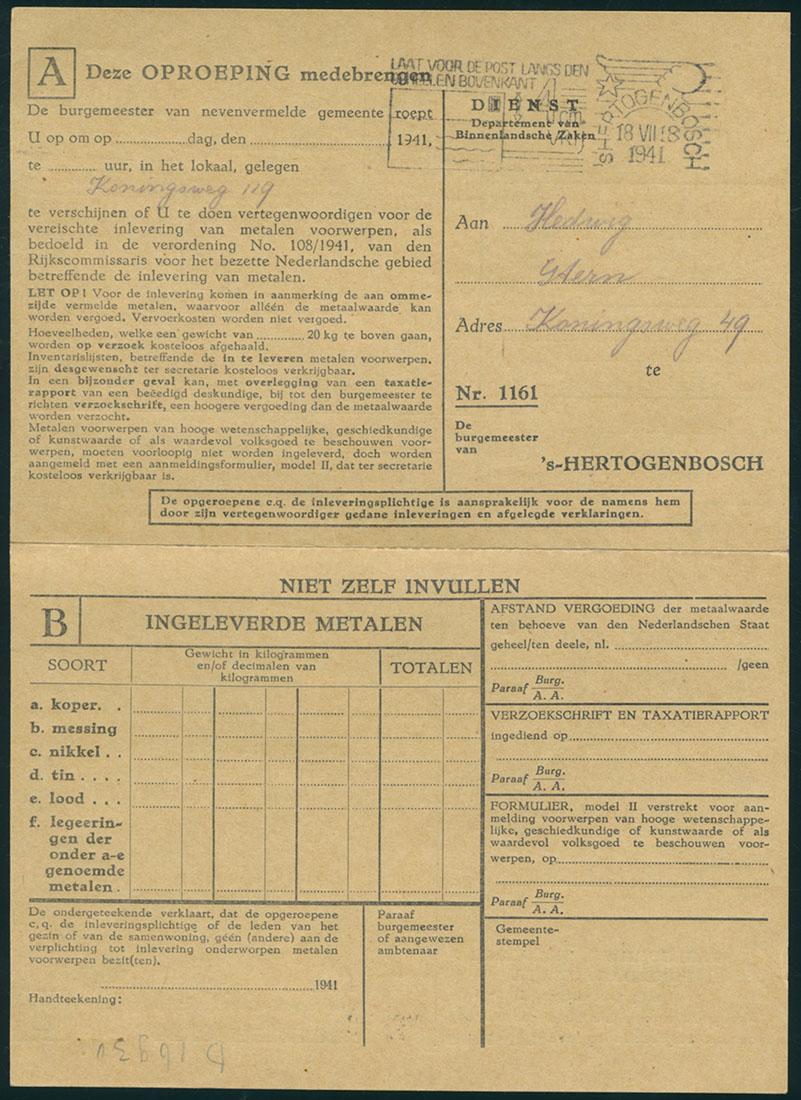 A Deze OPROEPING medebrengen
De burgemeester van nevenvermelde gemeente roept
U op om op ................dag, den ................................ 1941,
te ............ uur, in het lokaal, gelegen
Koningsweg 119
te verschijnen of U te doen vertegenwoordigen voor de
vereischte inlevering van metalen voorwerpen, als
bedoeld in de verordening No. 108/1941, van den
Rijkscommissaris voor het bezette Nederlandsche gebied
betreffende de inlevering van metalen.
LET OP! Voor de inlevering komen in aanmerking de aan omme-
zijde vermelde metalen, waarvoor alléén de metaalwaarde kan
worden vergoed. Vervoerkosten worden niet vergoed.
Hoeveelheden, welke een gewicht van ............ 20 kg te boven gaan,
worden op verzoek kosteloos afgehaald.
Inventarislijsten, betreffende de in te leveren metalen voorwerpen,
zijn desgewenscht ter secretarie kosteloos verkrijgbaar.
In een bijzonder geval kan, met overlegging van een taxatie-
rapport van een beëedigd deskundige, bij tot den burgemeester te
richten verzoekschrift, een hoogere vergoeding dan de metaalwaarde
worden verzocht.
Metalen voorwerpen van hooge wetenschappelijke, geschiedkundige
of kunstwaarde of als waardevol volksgoed te beschouwen voor-
werpen, moeten voorloopig niet worden ingeleverd, doch worden
aangemeld met een aanmeldingsformulier, model II, dat ter secretarie
kosteloos verkrijgbaar is.
LAAT VOOR DE POST LANGS DEN
BOVENKANT
'S-HERTOGENBOSCH
18 VII 18
1941
DIENST
Departement van
Binnenlandsche Zaken
Aan Hedwig
Stern
Adres Koningsweg 49
te
Nr. 1161
De
burgemeester
van
's-HERTOGENBOSCH
De opgeroepene c.q. de inleveringsplichtige is aansprakelijk voor de namens hem
door zijn vertegenwoordiger gedane inleveringen en afgelegde verklaringen.
NIET ZELF INVULLEN
B INGELEVERDE METALEN
SOORT
Gewicht in kilogrammen
en/of decimalen van
kilogrammen
TOTALEN
a. koper. .
b. messing
c. nikkel . .
d. tin . . . .
e. lood . . .
f. legeerin-
gen der
onder a-e
genoemde
metalen .
De ondergeteekende verklaart, dat de opgeroepene
c.q. de inleveringsplichtige of de leden van het
gezin of van de samenwoning, géén (andere) aan de
verplichting tot inlevering onderworpen metalen
voorwerpen bezit(ten).
................................1941
Handteekening:
Paraaf
burgemeester
of aangewezen
ambtenaar
AFSTAND VERGOEDING der metaalwaarde
ten behoeve van den Nederlandschen Staat
geheel/ten deele, nl. ................................
................................ /geen
Paraaf Burg.
A. A.
VERZOEKSCHRIFT EN TAXATIERAPPORT
ingediend op................................
Paraaf Burg.
A. A.
FORMULIER, model II verstrekt voor aan-
melding voorwerpen van hooge wetenschappe-
lijke, geschiedkundige of kunstwaarde of als
waardevol volksgoed te beschouwen voor-
werpen, op................................
Paraaf Burg.
A. A.
Gemeente-
stempel